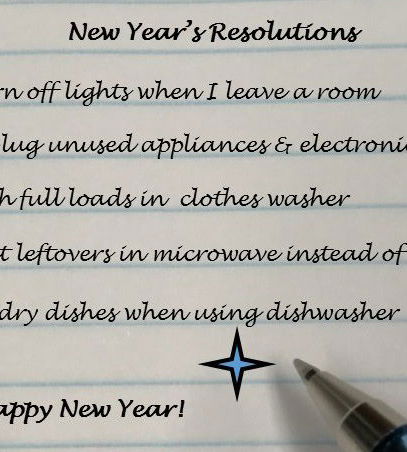 New Year's Resolutions
off lights when I leave a room
unused appliances & electroni
full loads in clothes washer
leftovers in microwave instead of
dry dishes when using dishwasher
appy New Year!